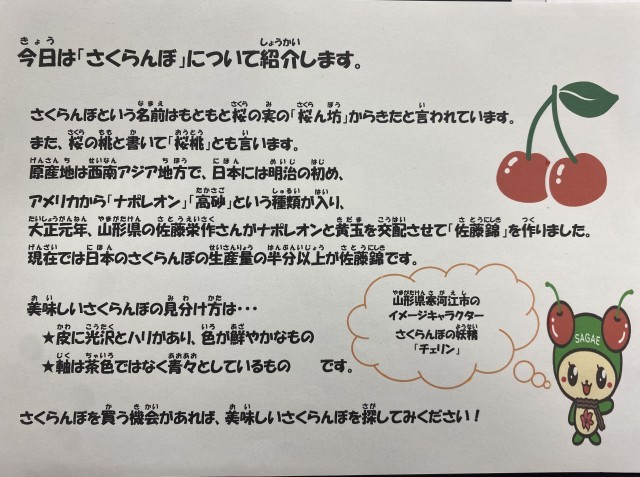 今日は「さくらんぼ」について紹介します。
さくらんぼという名前はもともと桜の実の「桜ん坊」からきたと言われています。
また、桜の桃と書いて「桜桃」とも言います。
原産地は西南アジア地方で、日本には明治の初め、
アメリカから「ナポレオン」「高砂」という種類が入り、
大正元年、山形県の佐藤栄作さんがナポレオンと黄玉を交配させて「佐藤錦」を作りました。
現在では日本のさくらんぼの生産量の半分以上が佐藤錦です。
美味しいさくらんぼの見分け方は・・・
★皮に光沢とハリがあり、色が鮮やかなもの
★軸は茶色ではなく青々としているもの　です。
さくらんぼを買う機会があれば、美味しいさくらんぼを探してみください！
山形県寒河江市の
イメージキャラクター
さくらんぼの妖精
「チェリン」
SAGAE